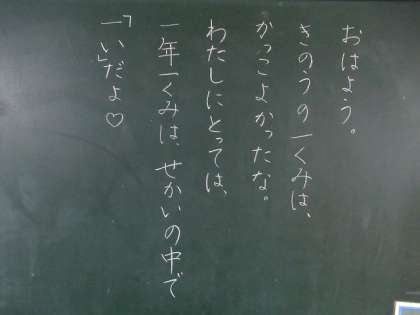 おはよう。
きのうの一くみは、
かっこよかったな。
わたしにとっては、
一年一くみは、せかいの中で
「一い」だよ♡